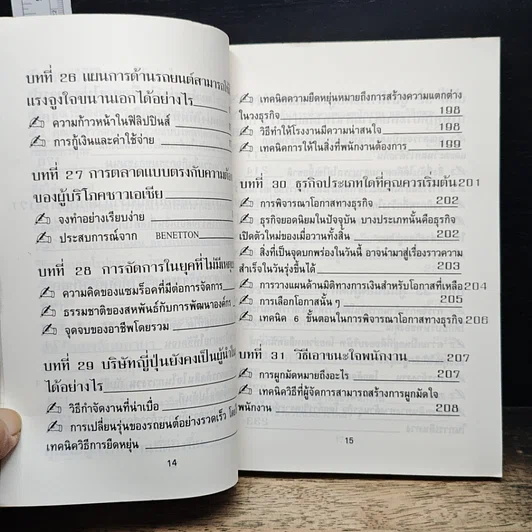 บทที่ 26 แผนการด้านรถยนต์สามารถใช้
แรงจูงใจขนานเอกได้อย่างไร
ความก้าวหน้าในฟิลิปปินส์
การกู้เงินและค่าใช้จ่าย
บทที่ 27 การตลาดแบบตรงกับความต้อง
ของผู้บริโภคชาวเอเชีย
จงทำอย่างเรียบง่าย
ประสบการณ์จาก BENETTON
บทที่ 28 การจัดการในยุคที่ไม่มีเหตุ
ความคิดของแชมร็อคที่มีต่อการจัดการ
ธรรมชาติของสหพันธ์กับการพัฒนาองค์กร
จุดจบของอาชีพโดยรวม
บทที่ 29 บริษัทญี่ปุ่นยังคงเป็นผู้นำใน
ได้อย่างไร
วิธีกำจัดงานที่น่าเบื่อ
การเปลี่ยนรุ่นของรถยนต์อย่างรวดเร็ว โดย
เทคนิควิธีการยืดหยุ่น
14
เทคนิคความยืดหยุ่นหมายถึงการสร้างความแตกต่าง
ในวงธุรกิจ 198
วิธีทำให้โรงงานมีความน่าสนใจ 198
เทคนิคการให้ในสิ่งที่พนักงานต้องการ 199
บทที่ 30 ธุรกิจประเภทใดที่คุณควรเริ่มต้น 201
การพิจารณาโอกาสทางธุรกิจ 202
ธุรกิจยอดนิยมในปัจจุบัน บางประเภทนั้นคือธุรกิจ
เปิดตัวใหม่ของเมื่อวานทั้งสิ้น 202
สิ่งที่เป็นจุดบกพร่องในวันนี้ อาจนำมาสู่เรื่องราวความ
สำเร็จในวันรุ่งขึ้นได้ 203
การวางแผนด้านมิติทางการเงินสำหรับโอกาสที่เหลือ 204
การเลือกโอกาสนั้น ๆ 205
เทคนิค 6 ขั้นตอนในการพิจารณาโอกาสทางธุรกิจ 206
บทที่ 31 วิธีเอาชนะใจพนักงาน 207
การผูกมัดหมายถึงอะไร 207
เทคนิควิธีที่ผู้จัดการสามารถสร้างการผูกมัดใจ
พนักงาน 208
15